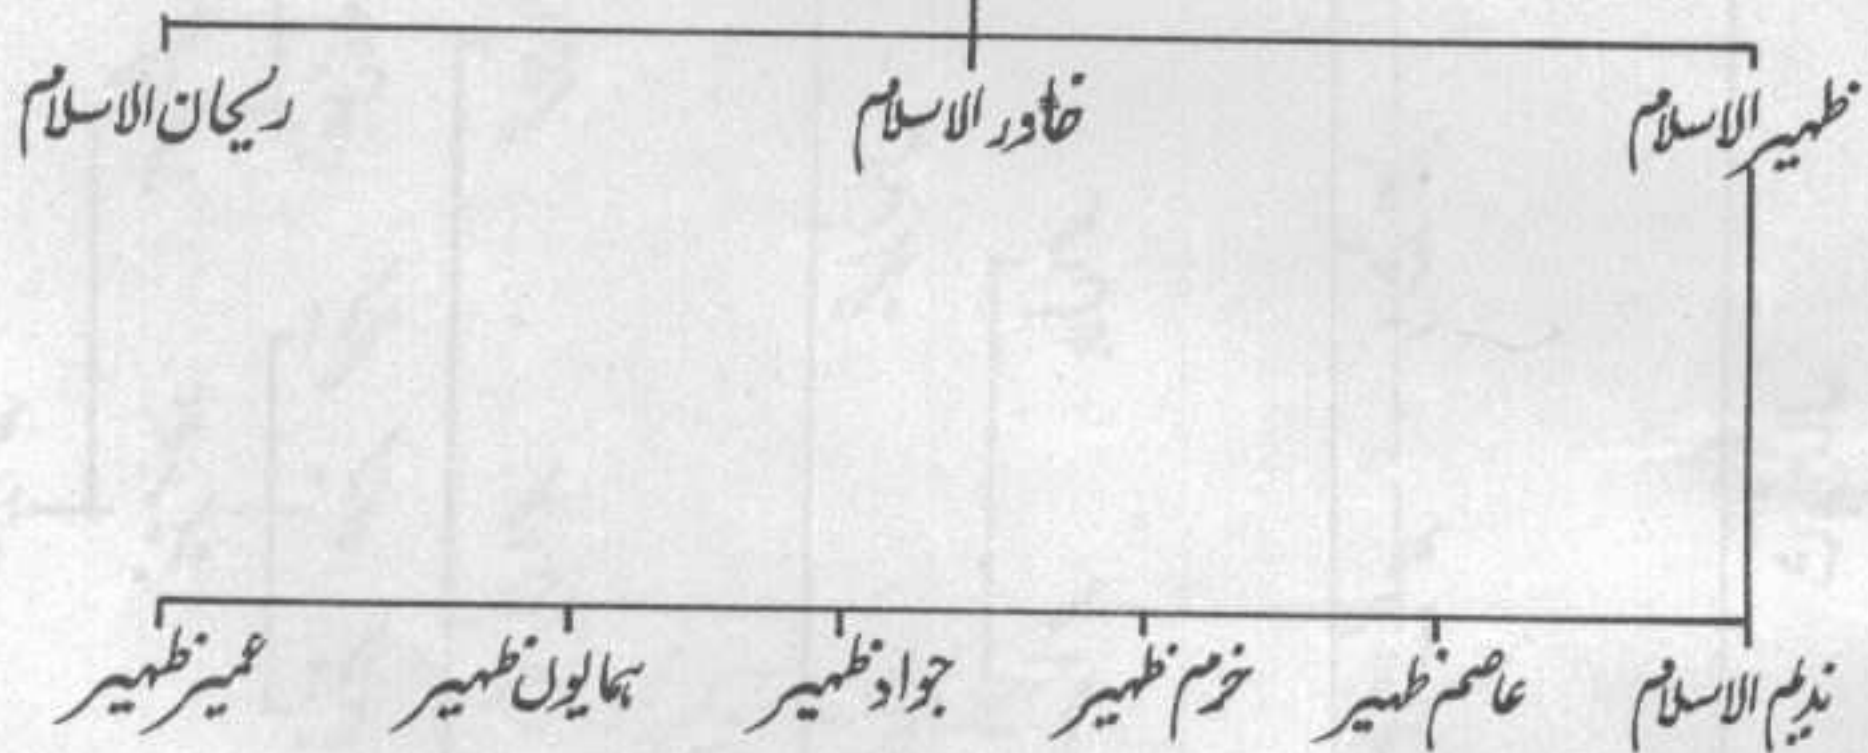 ظہیر الاسلام خاور الاسلام ریحان الاسلام
ندیم الاسلام عاصم ظہیر خرم ظہیر جواد ظہیر ہمایوں ظہیر عمیر ظہیر